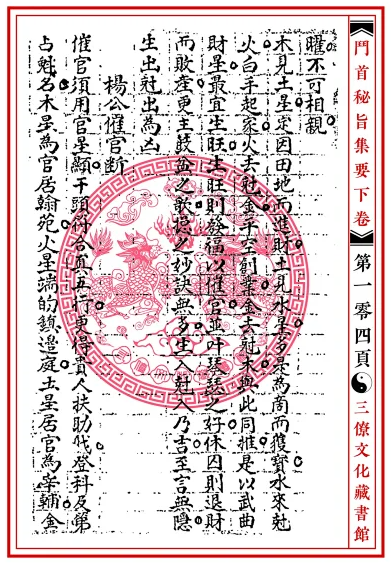 鬥首秘旨集要下卷
第一零四頁
三僚文化藏書館
曜不可相親
木見土星定因田地而進財土見水星多是為商而獲寶水來尅
火白手起家火去尅金平空創業金去尅木與此同推是以武曲
財星最宜生旺生旺則發福以催官並叶琴瑟之好休囚則退財
而敗產更主鼓盆之歌憶久妙訣無多生入尅入乃吉至言無隱
生出尅出為凶
楊公催官斷
催官須用官星顯干頭符合真五行更得貴人扶助代登科及第
占魁名木星為官居翰苑火星端的鎮邊庭土星居官為宰輔金